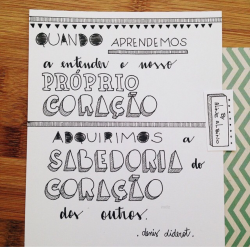 QUANDO APRENDEMOS
a entender o nosso
PRÓPRIO
CORAÇÃO
ADQUIRIMOS a
SABEDORIA do
CORAÇÃO
dos outros.
. denis diderot .
by